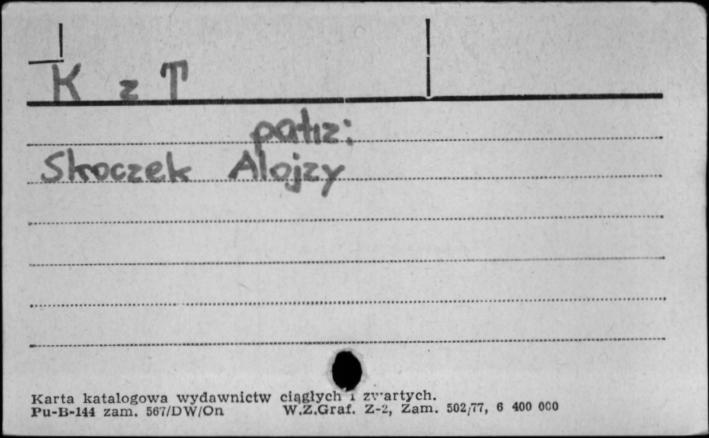 K z T
patrz:
Skoczek Alojzy
Karta katalogowa wydawnictw ciągłych i zwartych.
Pu-B-144 zam. 567/DW/On W.Z.Graf. Z-2, Zam. 502/77, 6 400 000